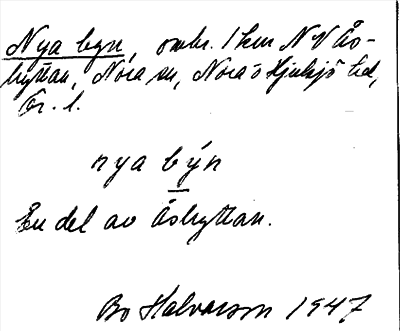 Nya byn, ombr. 1 km NV Ås-
hyttan, Nora sn, Nora o Hjulsjö bd,
Ör. l.
nya býn
En del av Åshyttan.
Bo Halvarson 1947